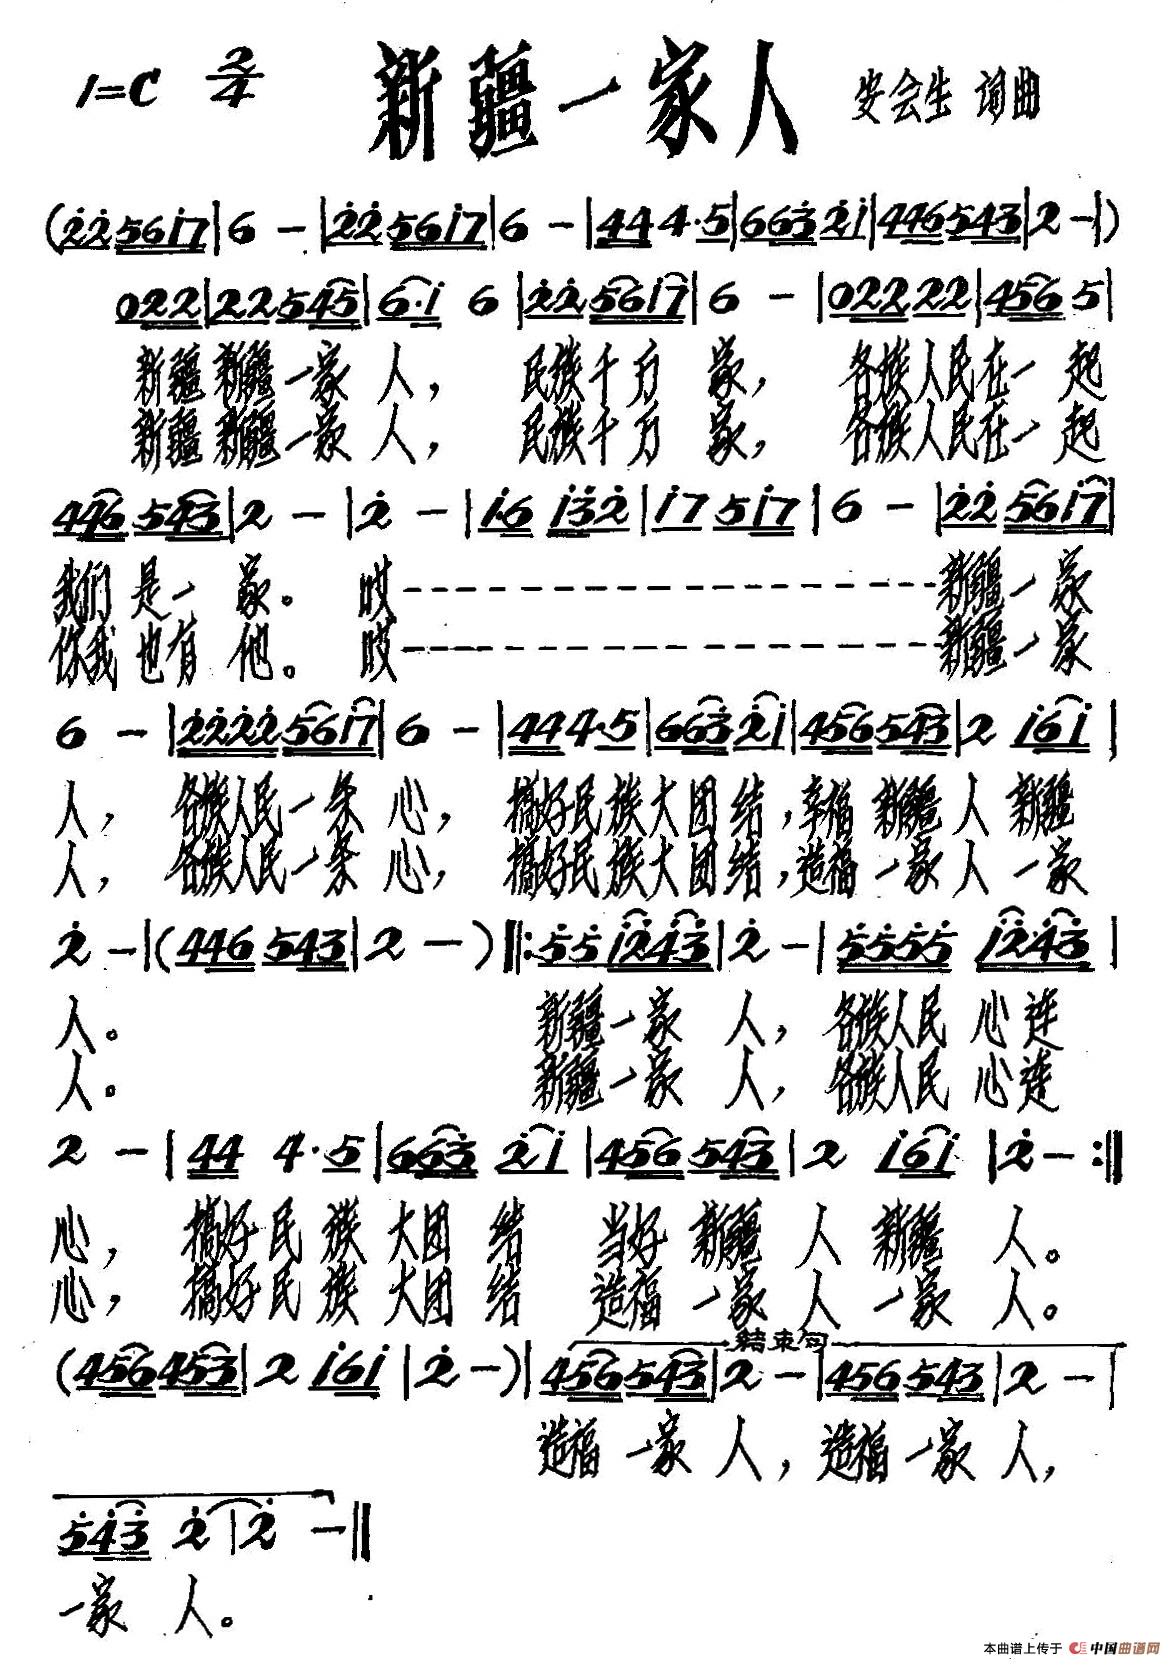 1=C 2/4 新疆一家人 安会生 词曲
(2̇2̇561̇7|6 -|2̇2̇561̇7|6 -|444·5|663̇2̇1̇|446543|2 -|)
022|22545|6·1̇ 6|2̇2̇561̇7|6 -|02222|456 5|
新疆 新疆一家 人， 民族千万 家， 各族人民在一 起
新疆 新疆一家 人， 民族千万 家， 各族人民在一 起
446 543|2 -|2̇ -|1̇·6 1̇3̇2̇|1̇7 51̇7|6 -|2̇2̇561̇7|
我们 是一 家。 哎------------------新疆一家
你我 也有 他。 哎------------------新疆一家
6 -|2̇2̇2̇2̇561̇7|6 -|444·5|663̇2̇1̇|456543|2 1̇61̇|
人， 各族人民一条 心， 搞好民族大团 结，幸福 新疆 人 新疆
人， 各族人民一条 心， 搞好民族大团结，造福 一家 人 一家
2̇ -|(446 543|2 -)‖:5̇5̇1̇2̇4̇3̇|2̇ -|5̇5̇5̇5̇ 1̇2̇4̇3̇|
人。 新疆一家 人， 各族人民 心连
人。 新疆一家 人， 各族人民 心连
2 -|44 4·5|663̇ 2̇1̇|456543|2 1̇61̇|2̇ -:‖
心， 搞好民 族 大团 结 当好 新疆 人 新疆 人。
心， 搞好民 族 大团 结 造福 一家 人 一家 人。
结束句
(456453|2 1̇61̇|2̇ -)|456543|2 -|456543|2 -|
造福 一家 人，造福 一家 人，
5̇4̇3̇ 2̇|2̇ -‖
一家 人。
本曲谱上传于 中国曲谱网